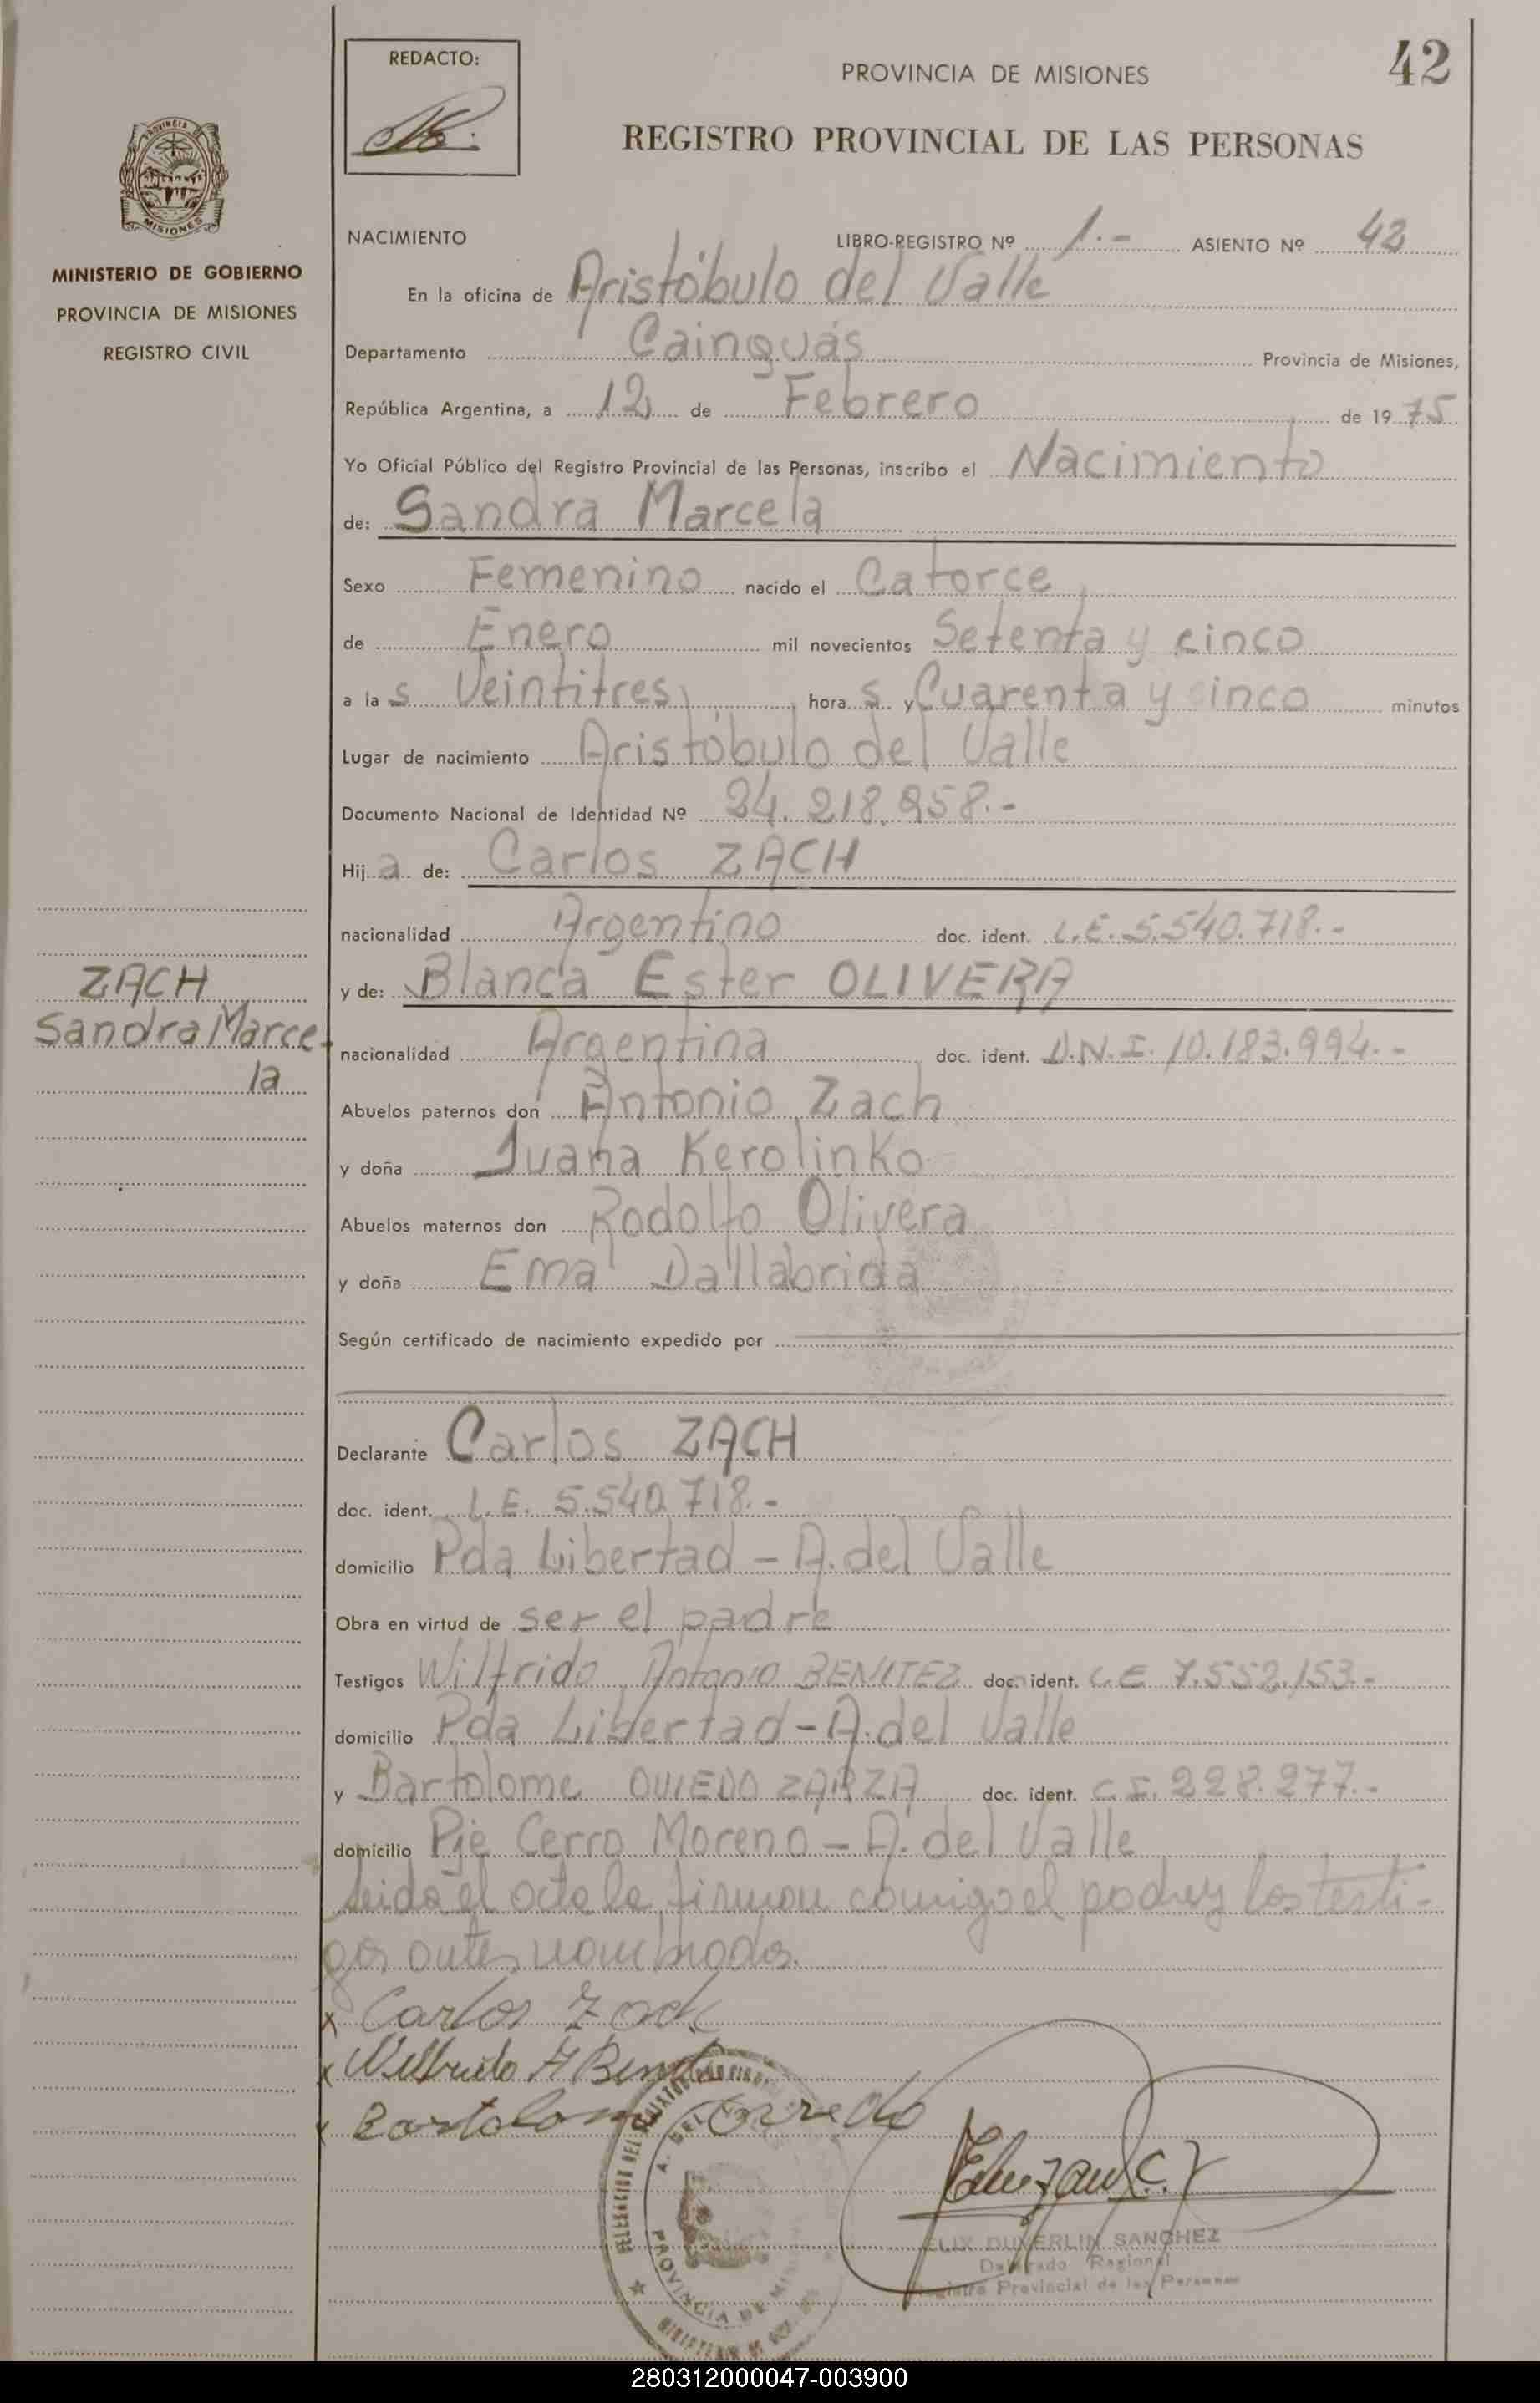 42
REDACTO:
PROVINCIA DE MISIONES
REGISTRO PROVINCIAL DE LAS PERSONAS
PROVINCIA
MISIONES
MINISTERIO DE GOBIERNO
PROVINCIA DE MISIONES
REGISTRO CIVIL
NACIMIENTO LIBRO-REGISTRO Nº 1.- ASIENTO Nº 42
En la oficina de Aristóbulo del Valle
Departamento Cainguás Provincia de Misiones,
República Argentina, a 12 de Febrero de 1975
Yo Oficial Público del Registro Provincial de las Personas, inscribo el Nacimiento
de: Sandra Marcela
Sexo Femenino nacido el Catorce
de Enero mil novecientos Setenta y cinco
a las Veintitres horas y Cuarenta y cinco minutos
Lugar de nacimiento Aristóbulo del Valle
Documento Nacional de Identidad Nº 24.218.958.-
Hija de: Carlos ZACH
nacionalidad Argentino doc. ident. L.E. 5.540.718.-
y de: Blanca Ester OLIVERA
nacionalidad Argentina doc. ident. D.N.I. 10.183.994.-
Abuelos paternos don Antonio Zach
y doña Juana Kerolinko
Abuelos maternos don Rodolfo Olivera
y doña Ema Dallabrida
Según certificado de nacimiento expedido por
ZACH
Sandra Marce-
la
Declarante Carlos ZACH
doc. ident. L.E. 5.540.718.-
domicilio Pda Libertad - A. del Valle
Obra en virtud de ser el padre
Testigos Wilfrido Antonio BENITEZ doc. ident. L.E 7.552.153.-
domicilio Pda Libertad - A. del Valle
y Bartolome OVIEDO ZARZA doc. ident. C.I. 228.277.-
domicilio Pje Cerro Moreno - A. del Valle
Leida el acta la firman conmigo el padre y los testi-
gos antes nombrados.
x Carlos Zach
x Wilfrido A Benitez
x Bartolome Oviedo
FELIX DUVERLIN SANCHEZ
Delegado Regional
Registro Provincial de las Personas
PROVINCIA DE MISIONES
280312000047-003900